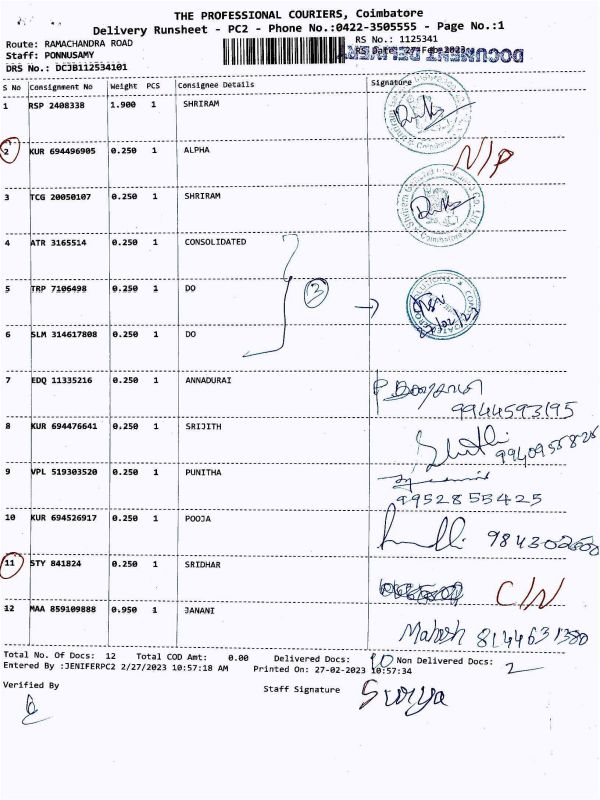 THE PROFESSIONAL COURIERS, Coimbatore
Delivery Runsheet - PC2 - Phone No.:0422-3505555 - Page No.:1
Route: RAMACHANDRA ROAD RS No.: 1125341
Staff: PONNUSAMY RS Date: 27-Feb-2023
DRS No.: DCJB112534101
DOCUMENT DELIVERY
S No Consignment No Weight PCS Consignee Details Signature
1 RSP 2408338 1.900 1 SHRIRAM
2 KUR 694496905 0.250 1 ALPHA N/P
3 TCG 20050107 0.250 1 SHRIRAM
4 ATR 3165514 0.250 1 CONSOLIDATED
5 TRP 7106498 0.250 1 DO 3
6 SLM 314617808 0.250 1 DO
7 EDQ 11335216 0.250 1 ANNADURAI
9944593195
8 KUR 694476641 0.250 1 SRIJITH
9940955825
9 VPL 519303520 0.250 1 PUNITHA
9952855425
10 KUR 694526917 0.250 1 POOJA
11 STY 841824 0.250 1 SRIDHAR C/N
12 MAA 859109888 0.950 1 JANANI
Mahesh 8144631380
Total No. Of Docs: 12 Total COD Amt: 0.00 Delivered Docs: 10 Non Delivered Docs: 2
Entered By :JENIFERPC2 2/27/2023 10:57:18 AM Printed On: 27-02-2023 10:57:34
Verified By Staff Signature Surya